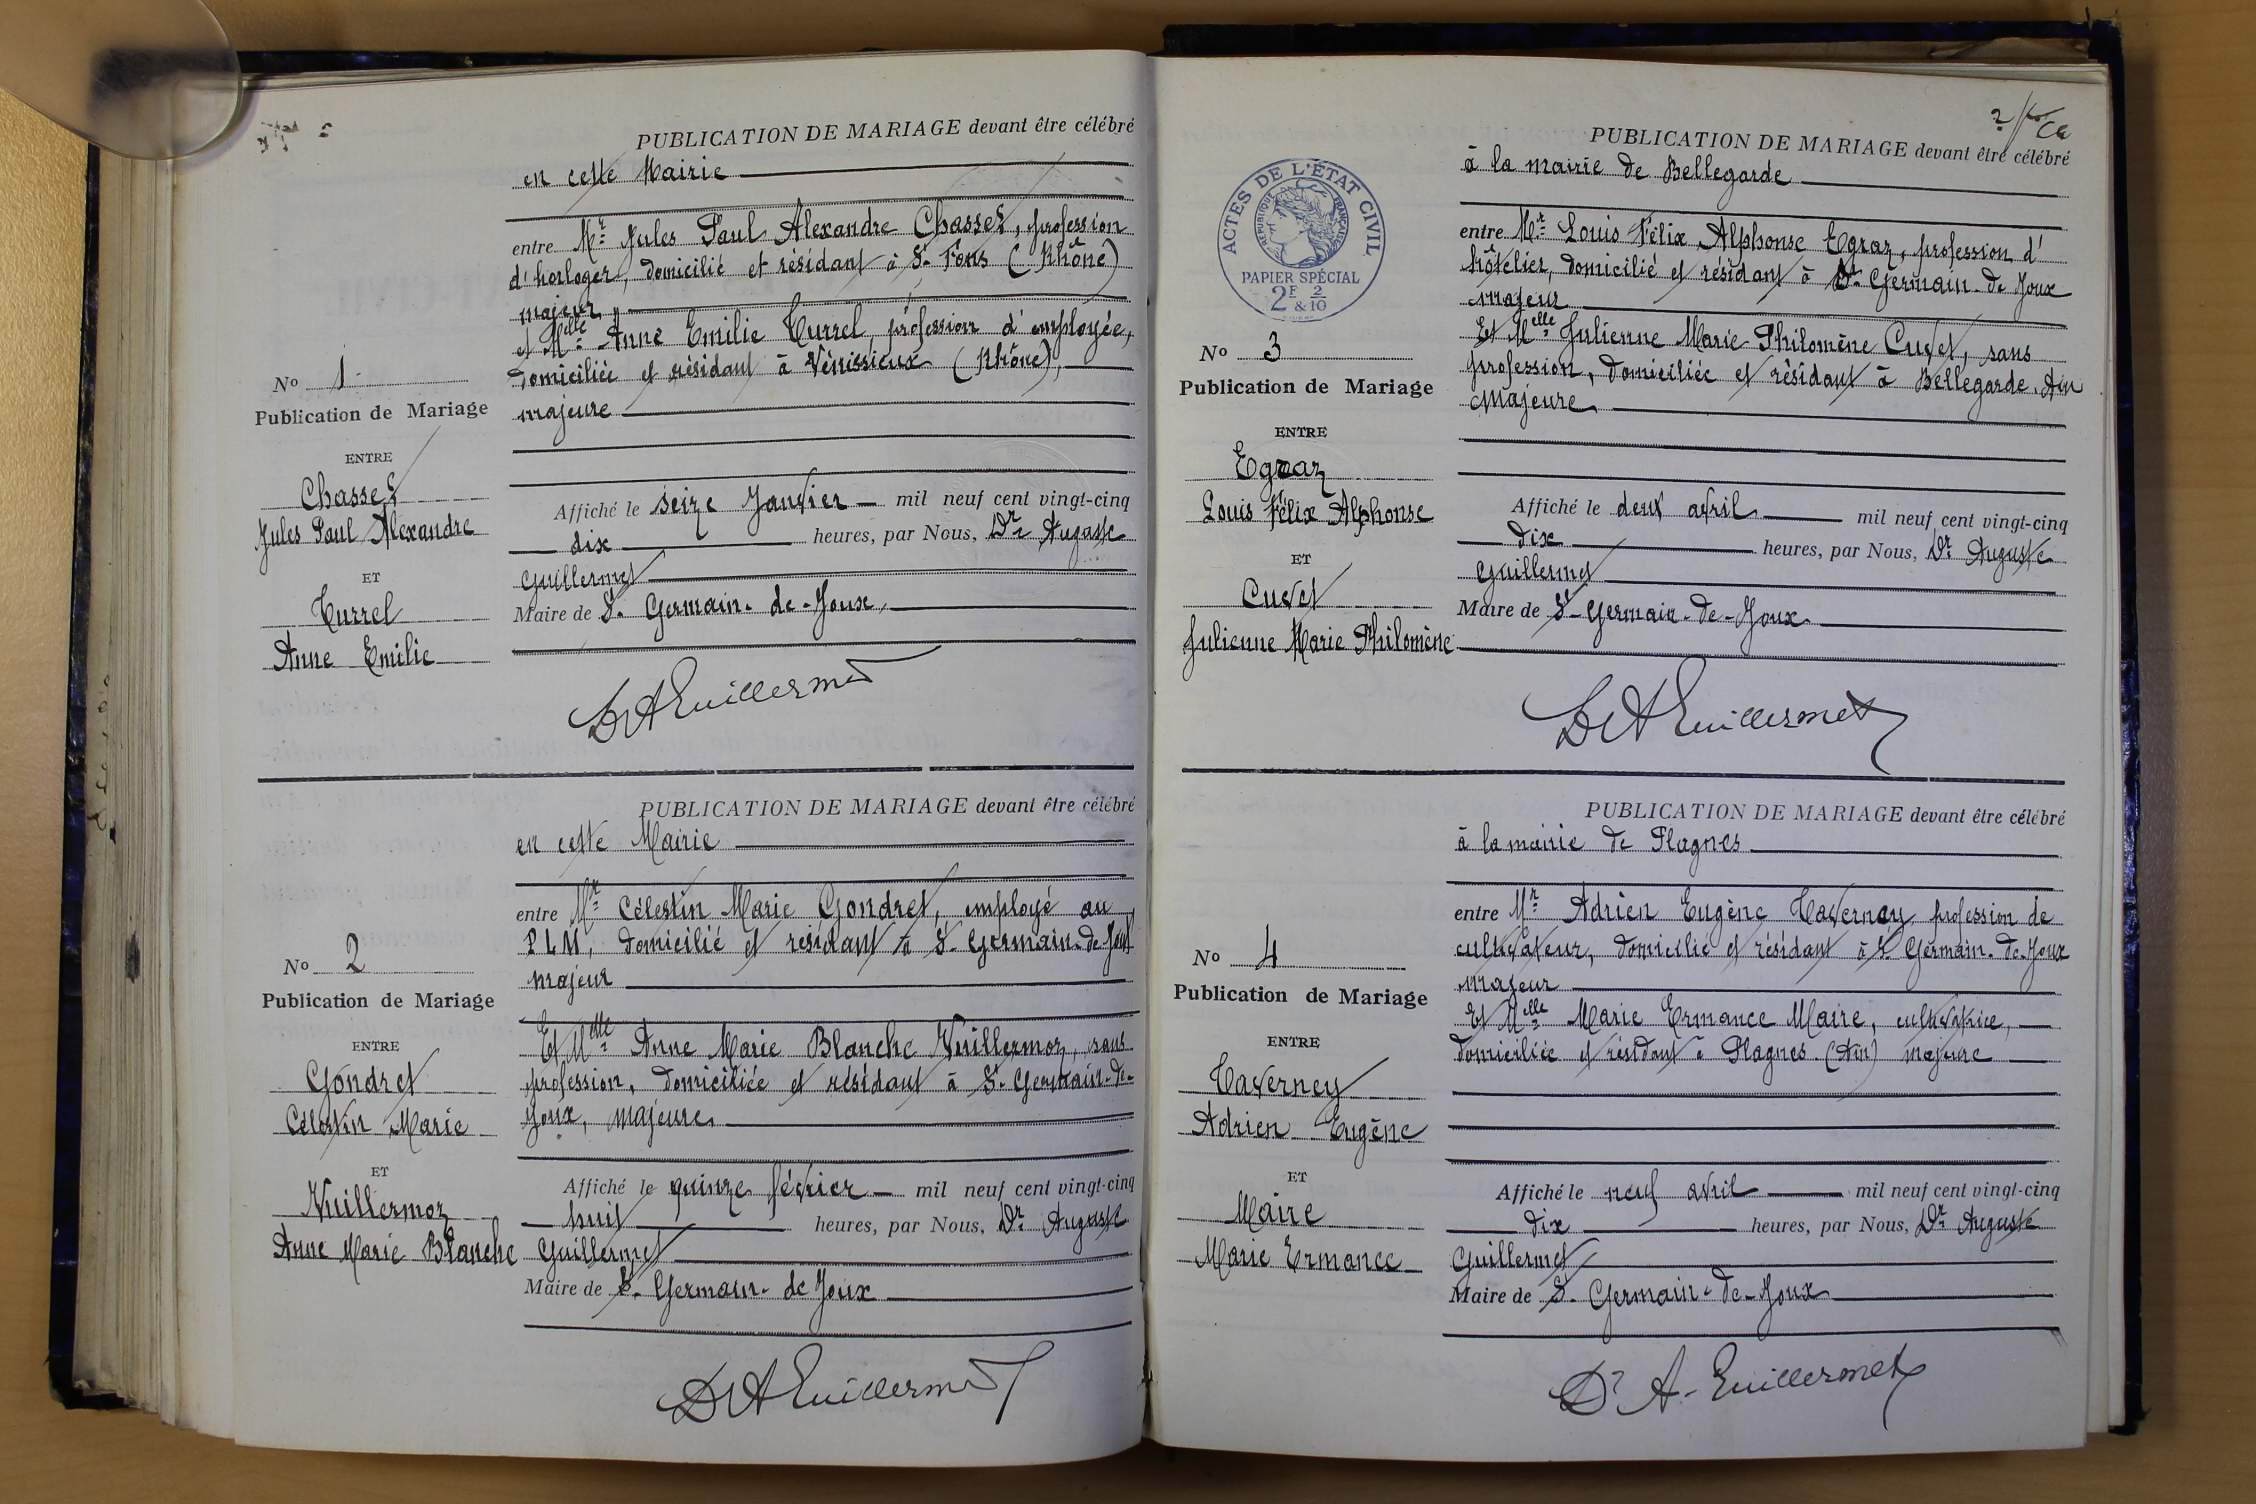 PUBLICATION DE MARIAGE devant être célébré
en cette Mairie
entre Mr Jules Paul Alexandre Chassez, profession
d'horloger, domicilié et résidant à St-Fons (Rhône)
majeur
et Melle Anne Emilie Turrel, profession d'employée,
domiciliée et résidant à Vénissieux (Rhône),
majeure
No 1
Publication de Mariage
ENTRE
Chassez
Jules Paul Alexandre
ET
Turrel
Anne Emilie
Affiché le seize Janvier mil neuf cent vingt-cinq
dix heures, par Nous, Dr Auguste
Guillermet
Maire de St-Germain-de-Joux,
Dr A Guillermet
PUBLICATION DE MARIAGE devant être célébré
en cette Mairie
entre Mr Célestin Marie Gondret, employé au
P.L.M, domicilié et résidant à St-Germain-de-Joux
majeur
Et Melle Anne Marie Blanche Vuillermoz, sans
profession, domiciliée et résidant à St-Germain-de-
Joux, majeure
No 2
Publication de Mariage
ENTRE
Gondret
Célestin Marie
ET
Vuillermoz
Anne Marie Blanche
Affiché le quinze février mil neuf cent vingt-cinq
huit heures, par Nous, Dr Auguste
Guillermet
Maire de St-Germain-de Joux
Dr A Guillermet
2
PUBLICATION DE MARIAGE devant être célébré
à la mairie de Bellegarde
ACTES DE L'ÉTAT CIVIL
RÉPUBLIQUE FRANÇAISE
PAPIER SPÉCIAL
2F & 2/10
entre Mr Louis Félix Alphonse Egraz, profession d'
hôtelier, domicilié et résidant à St-Germain-de Joux
majeur
Et Melle Julienne Marie Philomène Cuvet, sans
profession, domiciliée et résidant à Bellegarde, Ain
majeure
No 3
Publication de Mariage
ENTRE
Egraz
Louis Félix Alphonse
ET
Cuvet
Julienne Marie Philomène
Affiché le deux avril mil neuf cent vingt-cinq
dix heures, par Nous, Dr Auguste
Guillermet
Maire de St-Germain-de-Joux
Dr A Guillermet
PUBLICATION DE MARIAGE devant être célébré
à la mairie de Plagnes
entre Mr Adrien Eugène Taverney, profession de
cultivateur, domicilié et résidant à St-Germain-de-Joux
majeur
Et Melle Marie Ermance Maire, cultivatrice,
domiciliée et résidant à Plagnes (Ain) majeure
No 4
Publication de Mariage
ENTRE
Taverney
Adrien Eugène
ET
Maire
Marie Ermance
Affiché le neuf avril mil neuf cent vingt-cinq
dix heures, par Nous, Dr Auguste
Guillermet
Maire de St-Germain-de-Joux
Dr A. Guillermet